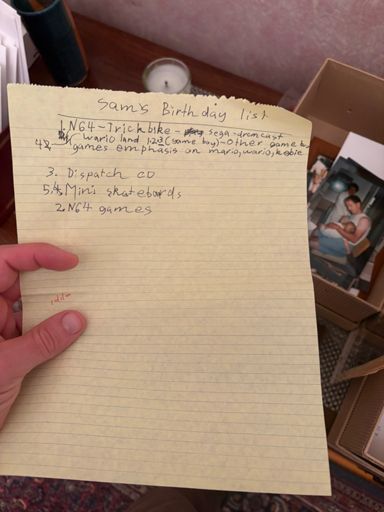 Sam's Birthday list
1. N64-Trickbike- sega-dremcast
Wario land 123(game boy)-Other game b
4. games emphasis on mario, wario, kerbie
3. Dispatch CD
5. Mini skatebords
2. N64 games